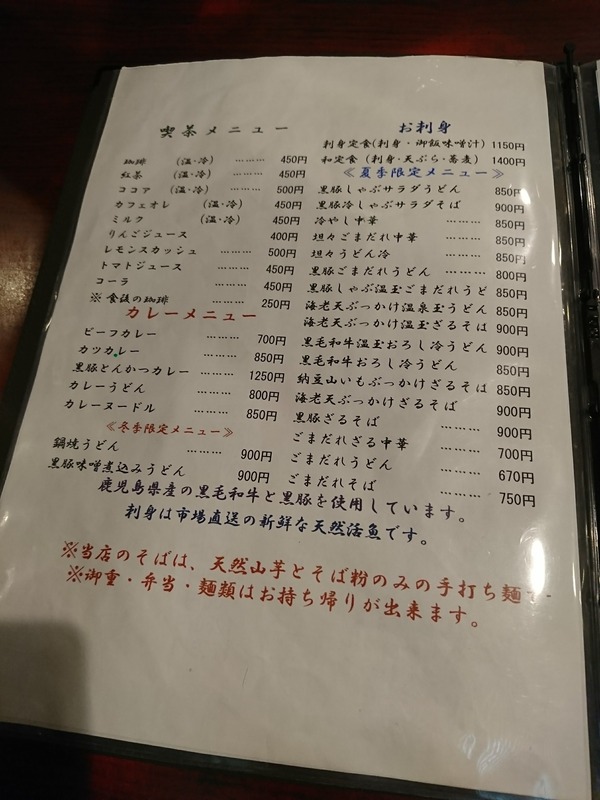 喫茶メニュー
珈琲 (温・冷) ……… 450円
紅茶 (温・冷) ……… 450円
ココア (温・冷) ……… 500円
カフェオレ (温・冷) 450円
ミルク (温・冷) 450円
りんごジュース 400円
レモンスカッシュ ……… 500円
トマトジュース ……… 450円
コーラ ……… 450円
※食後の珈琲 ……… 250円
カレーメニュー
ビーフカレー ……… 700円
カツカレー ……… 850円
黒豚とんかつカレー ……… 1250円
カレーうどん ……… 800円
カレーヌードル ……… 850円
≪冬季限定メニュー≫
鍋焼うどん ……… 900円
黒豚味噌煮込みうどん 900円
お刺身
刺身定食(刺身・御飯味噌汁) 1150円
和定食 (刺身・天ぷら・蕎麦) 1400円
≪夏季限定メニュー≫
黒豚しゃぶサラダうどん 850円
黒豚冷しゃぶサラダそば 900円
冷やし中華 ……… 850円
坦々ごまだれ中華 ……… 850円
坦々うどん冷 ……… 850円
黒豚ごまだれうどん ……… 800円
黒豚しゃぶ温玉ごまだれうど 850円
海老天ぶっかけ温泉玉うどん 850円
海老天ぶっかけ温玉ざるそば 900円
黒毛和牛温玉おろし冷うどん 900円
黒毛和牛おろし冷うどん 850円
納豆山いもぶっかけざるそば 850円
海老天ぶっかけざるそば 900円
黒豚ざるそば ……… 900円
ごまだれざる中華 ……… 700円
ごまだれうどん ……… 670円
ごまだれそば ……… 750円
鹿児島県産の黒毛和牛と黒豚を使用しています。
刺身は市場直送の新鮮な天然活魚です。
※当店のそばは、天然山芋とそば粉のみの手打ち麺です
※御重・弁当・麺類はお持ち帰りが出来ます。